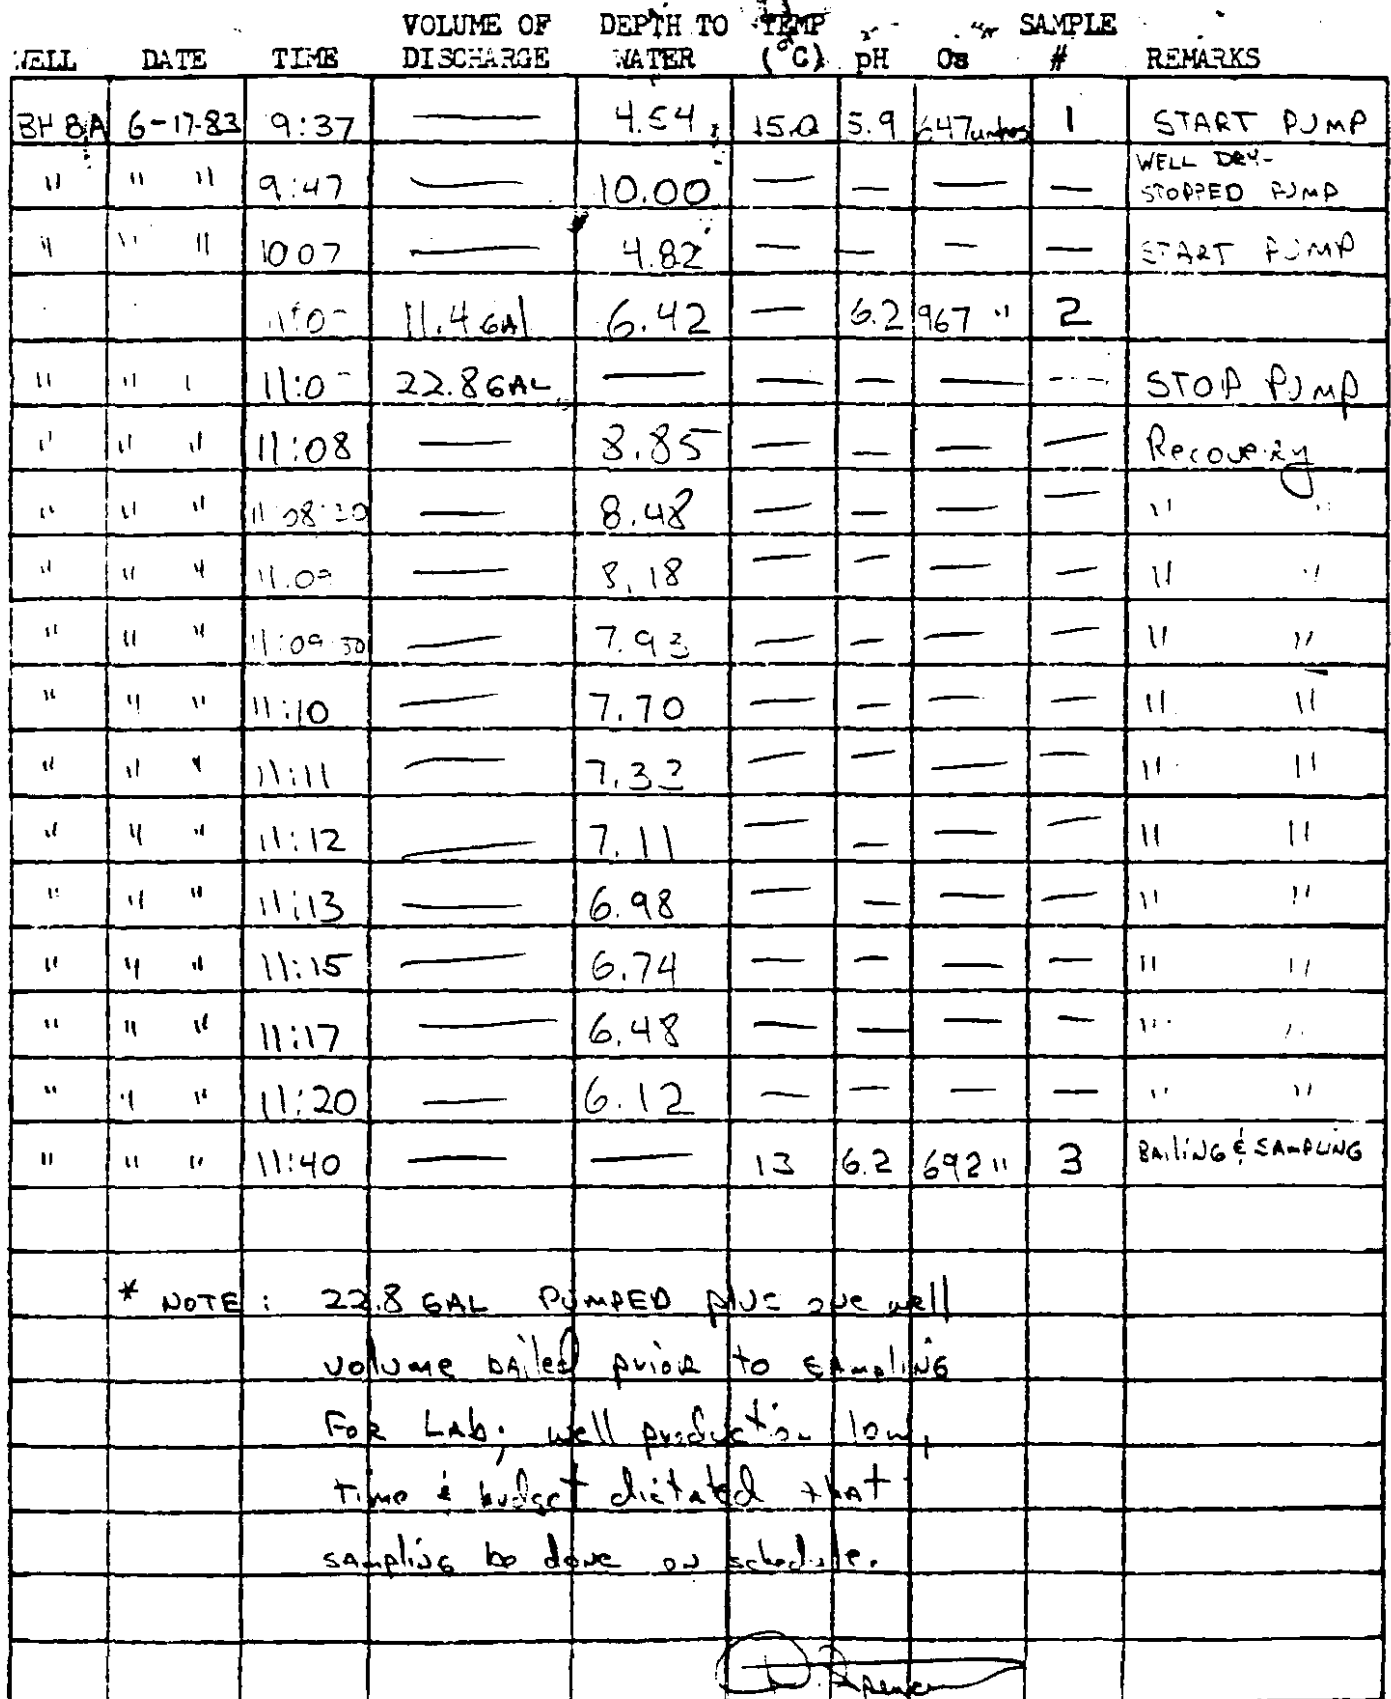 VOLUME OF DEPTH TO TEMP SAMPLE
WELL DATE TIME DISCHARGE WATER (°C) pH Os # REMARKS
BH 8A 6-17-83 9:37 — 4.54 15.0 5.9 647 umhos 1 START PUMP
" " " 9:47 — 10.00 — — — — WELL DRY- STOPPED PUMP
" " " 1007 — 4.82 — — — — START PUMP
11.4 GAl 6.42 — 6.2 967 " 2
" " " 22.8 GAL — — — — — STOP PUMP
" " " 11:08 — 8.85 — — — — Recovery
" " " — 8.48 — — — — " "
" " " 11:09 — 8.18 — — — — " "
" " " 11:09:30 — 7.93 — — — — " "
" " " 11:10 — 7.70 — — — — " "
" " " 11:11 — 7.32 — — — — " "
" " " 11:12 — 7.11 — — — — " "
" " " 11:13 — 6.98 — — — — " "
" " " 11:15 — 6.74 — — — — " "
" " " 11:17 — 6.48 — — — — " "
" " " 11:20 — 6.12 — — — — " "
" " " 11:40 — — 13 6.2 692 " 3 BAiliNG & SAMPLING
* NOTE: 22.8 GAL PUMPED plus one well
volume bailed prior to sampling
For Lab; well production low,
Time & budget dictated that
sampling be done on schedule.
D. Spencer